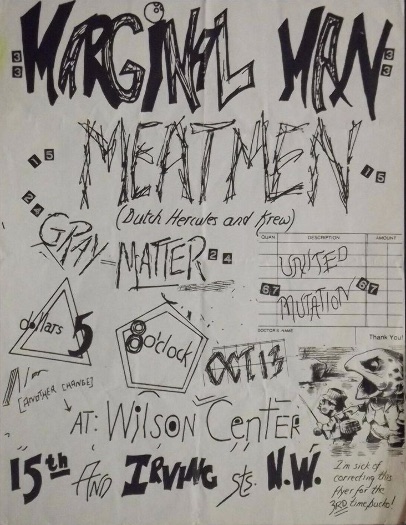 MARGINAL MAN
3
3
3
3
MEATMEN
1 5
1 5
(Dutch Hercules and Krew)
2 4
GRAY MATTER
2 4
QUAN. DESCRIPTION AMOUNT
UNITED
67 67
MUTATION
DOCTOR'S NAME
Thank You!
dollars 5
8 o'clock
OCT 13
[ANOTHER CHANGE]
AT: WILSON CENTER
15th AND IRVING sts. N.W.
I'm sick of
correcting this
flyer for the
3RD time, Sucko!